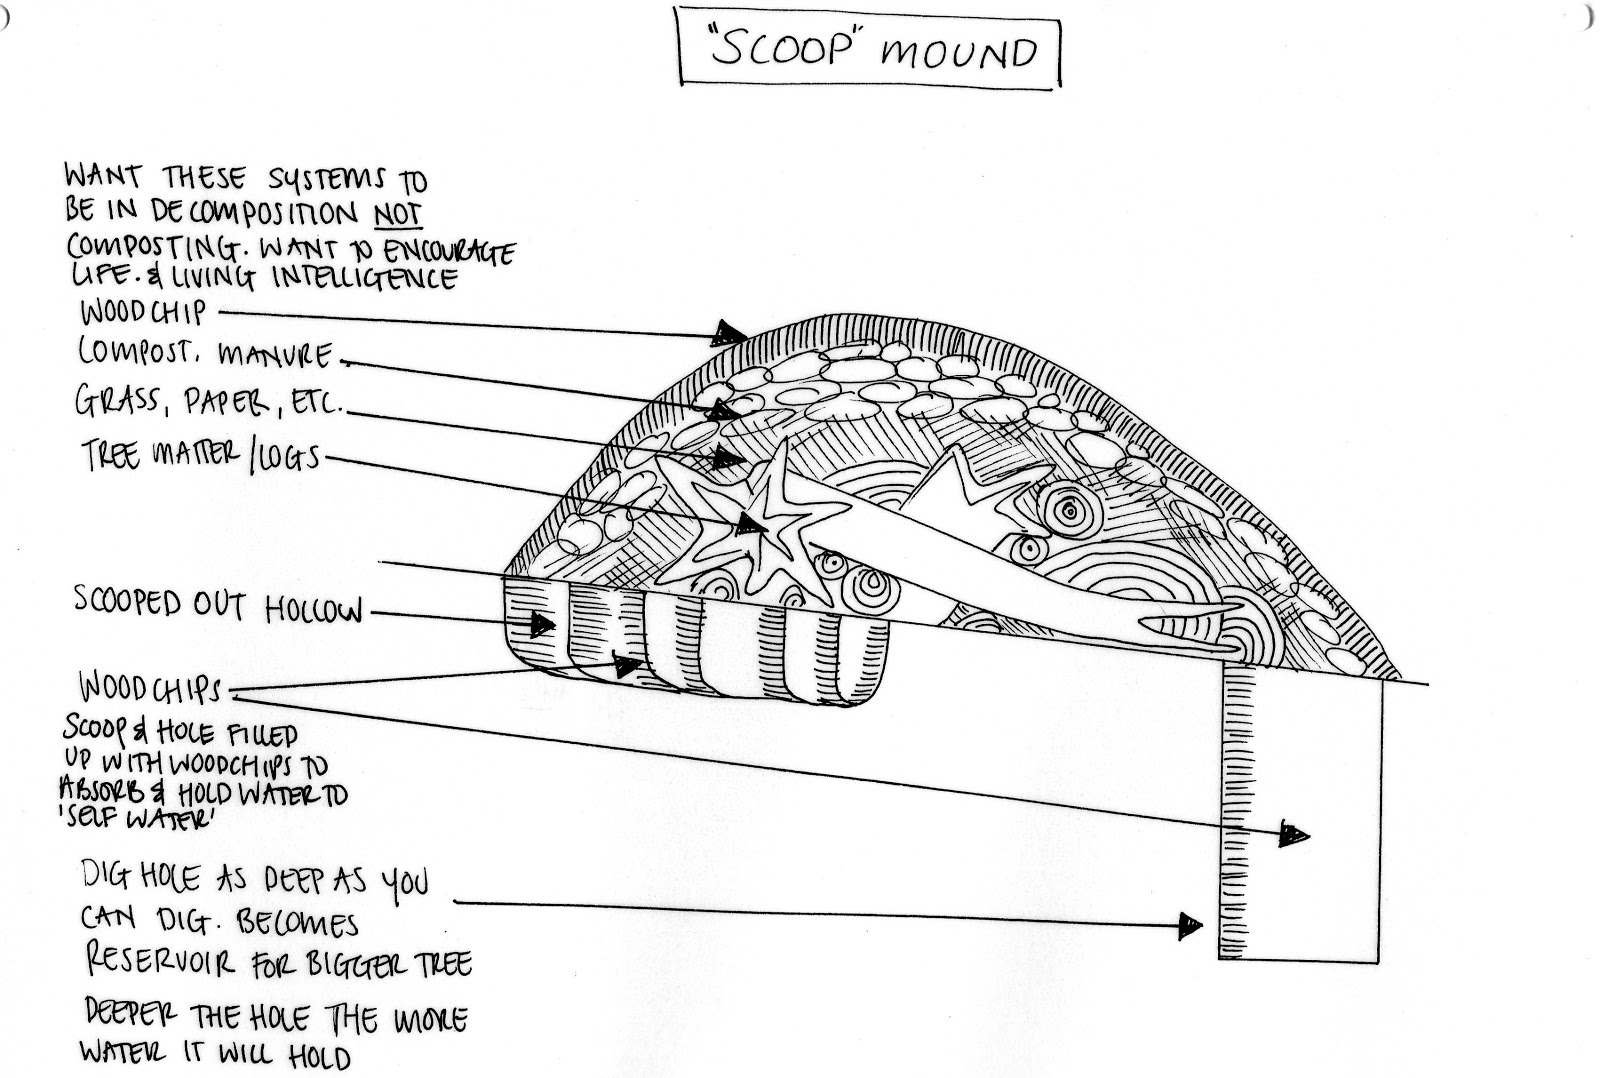 "SCOOP" MOUND
WANT THESE SYSTEMS TO
BE IN DECOMPOSITION NOT
COMPOSTING. WANT TO ENCOURAGE
LIFE. & LIVING INTELLIGENCE
WOODCHIP
COMPOST. MANURE
GRASS, PAPER, ETC.
TREE MATTER/LOGS
SCOOPED OUT HOLLOW
WOODCHIPS
SCOOP & HOLE FILLED
UP WITH WOODCHIPS TO
ABSORB & HOLD WATER TO
'SELF WATER'
DIG HOLE AS DEEP AS YOU
CAN DIG. BECOMES
RESERVOIR FOR BIGGER TREE
DEEPER THE HOLE THE MORE
WATER IT WILL HOLD